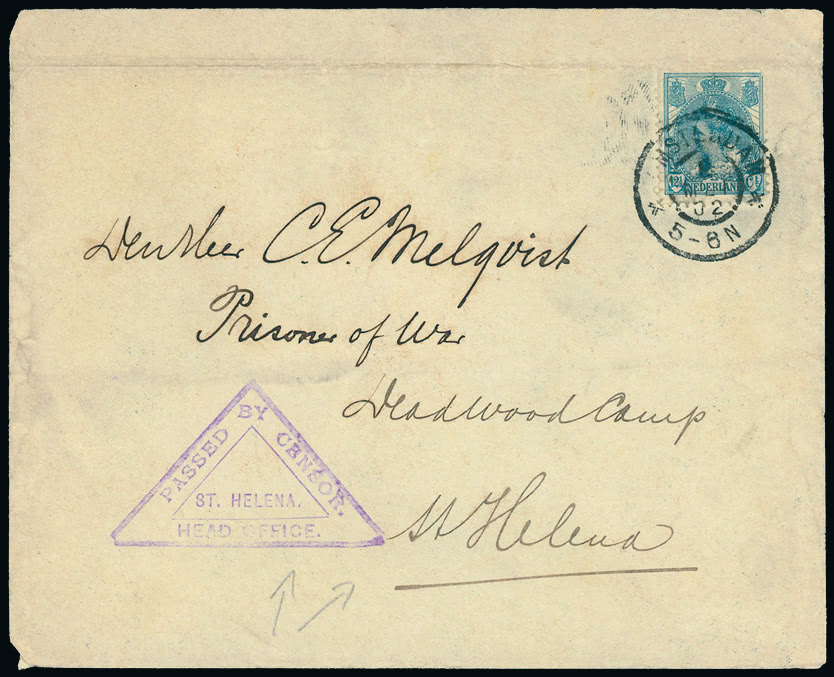 AMSTERDAM
02
* 5-6N *
12½ NEDERLAND Ct
Den Heer C.E. Melqvist
Prisoner of War
Deadwood Camp
St Helena
PASSED BY CENSOR.
ST. HELENA.
HEAD OFFICE.